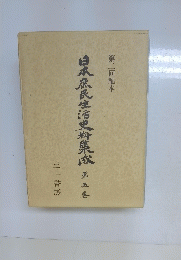 第二回配本
日本庶民生活史料集成 第五巻
三一書房